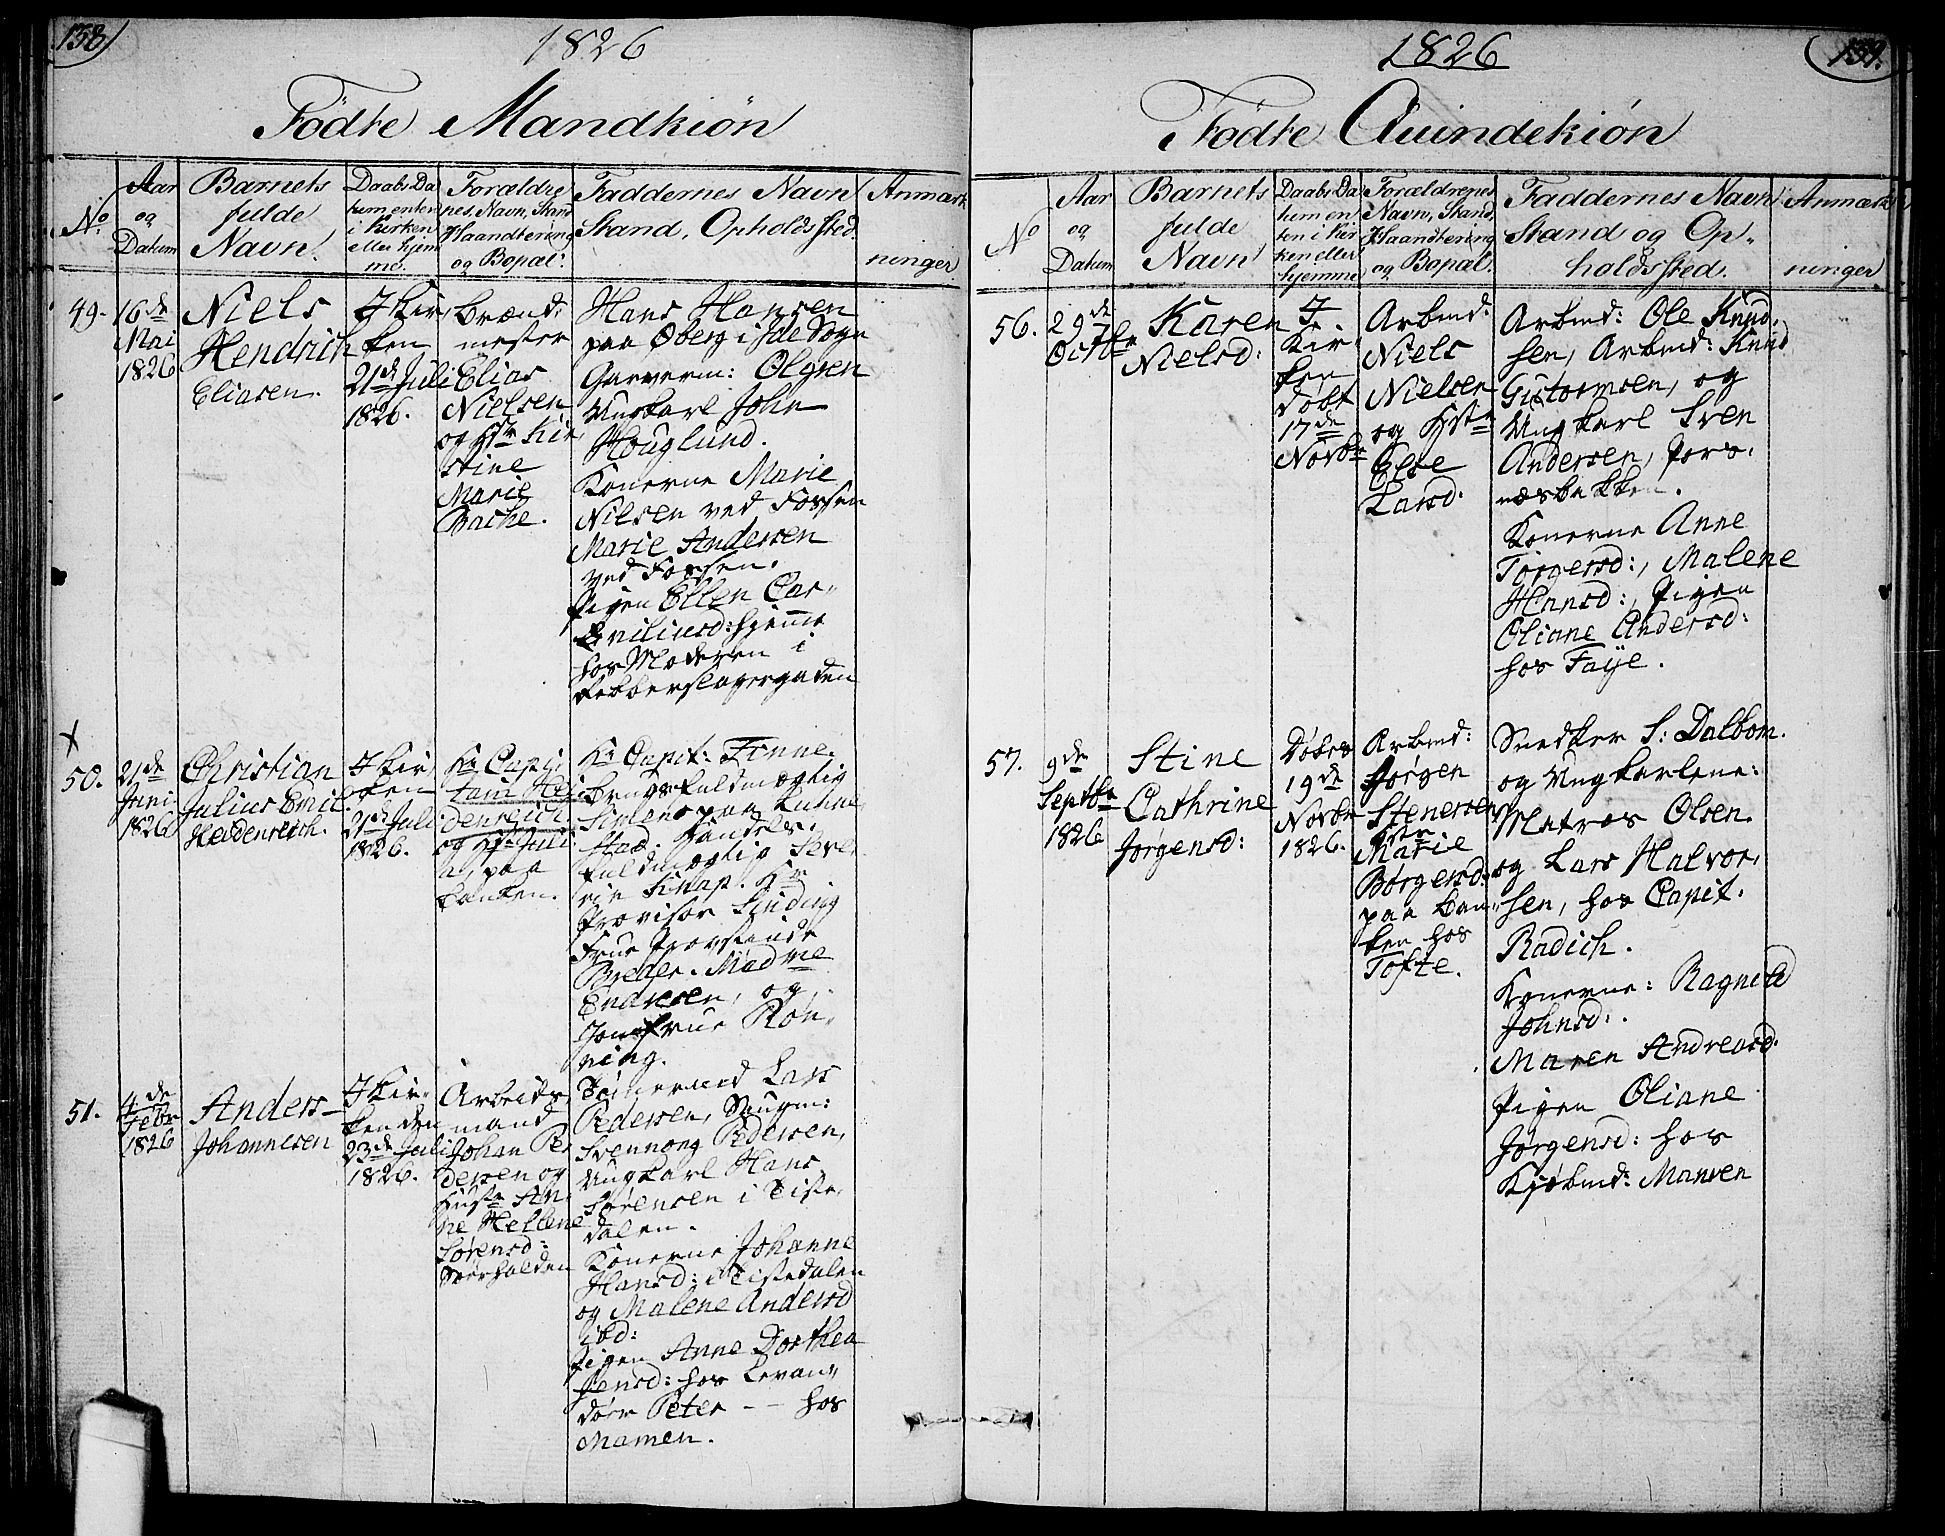 158
1826
Födte Mandkiön
No
Aar
og
Datum
Barnets
fulde
Navn.
Daabs Da
tum enten
i Kirken
eller hjem
me.
Forældre
nes, Navn, Stand
Haandtering
og Bopæl.
Faddernes Navn
Stand, Opholdssted.
Anmærk
ninger
49.
16de
Mai
1826
Niels
Hendrich
Eliasen.
I Kir,
ken
21de Juli
1826.
Brænd:
mester
Elias
Nielsen
og Hstr Kir,
stine
Marie
Bache.
Hans Hansen
paa Øberg i Ide Sogn
Garverm: Olsen
Ungkarl John
Houglund.
Konerne Marie
Nilsen ved Fossen
Marie Andersen
ved Fossen.
Pigen Ellen Cor,
hjemme
hos Moderen i
Rebberslagergaden
50.
21de
Juni
1826
Christian
Julius Emil
Heidenreich.
I Kir,
ken
21de Juli
1826.
Hr Capi,
tain Hei
denreich
og Juli
a, paa
Banken.
Hr Capit: Finne.
Brugsfuldmægtig
paa
Stad. Handels,
fuldmægtig Seve,
rin Knap. Hr
Provisor Sinding
Frue Provstinde
Breder. Madme
Endresen, og
Jomfrue Røn,
ning.
51.
4de
Febr
1826
Anders
Johannesen
I Kir,
ken den
23de Juli
1826.
Arbeids,
mand
Johan Pe,
dersen og
Hustr An,
ne Hellene
Sørensd:
Tømermd Lars
Pedersen, Saugm:
Svennong Pedersen,
Ungkarl Hans
Sørensen i Tiste,
dalen.
Konerne Johanne
Hansd: i Tistedalen
og Malene Andersd
ibd:
Pigen Anne Dorthea
Jensd: hos Levan,
dör Peter -- hos
Mamen.
1826
159.
Födte Quindekiön
No
Aar
og
Datum
Barnets
fulde
Navn
Daabs Da
tum en
ten i Kir
ken eller
hjemme
Forældrenes
Navn, Stand,
Haandtering
og Bopæl.
Faddernes Navn
Stand og Op,
holdssted.
Anmærk
ninger
56.
29de
Octbr
Karen
Nielsd:
I
Kir,
ken
døbt
17de
Novbr
Arbmd:
Niels
Nielsen
og Hstr
Else
Larsd.
Arbmd: Ole Knud,
sen, Arbmd: Knud
Guttormsen, og
Ungkarl Sven
Andersen, Pors,
næsbakken.
Konerne Anne
Torgersd:, Malene
Hansd:, Pigen
Oliane Andersd:
hos Faÿe.
57.
9de
Septbr
1826
Stine
Cathrine
Jørgensd:
Døbt
19de
Novbr
1826.
Arbmd:
Jørgen
Stenersen
Hstr
Marie
Børgersd:
paa Ban,
ken hos
Tofte.
Snedker S: Dalbom.
og Ungkarlene:
Matros Olsen.
og Lars Halvor,
sen, hos Capit.
Radich.
Konerne: Ragnild
Johnsd:.
Maren Andreasd.
Pigen Oliane
Jørgensd: hos
Kjøbmd: Mansen